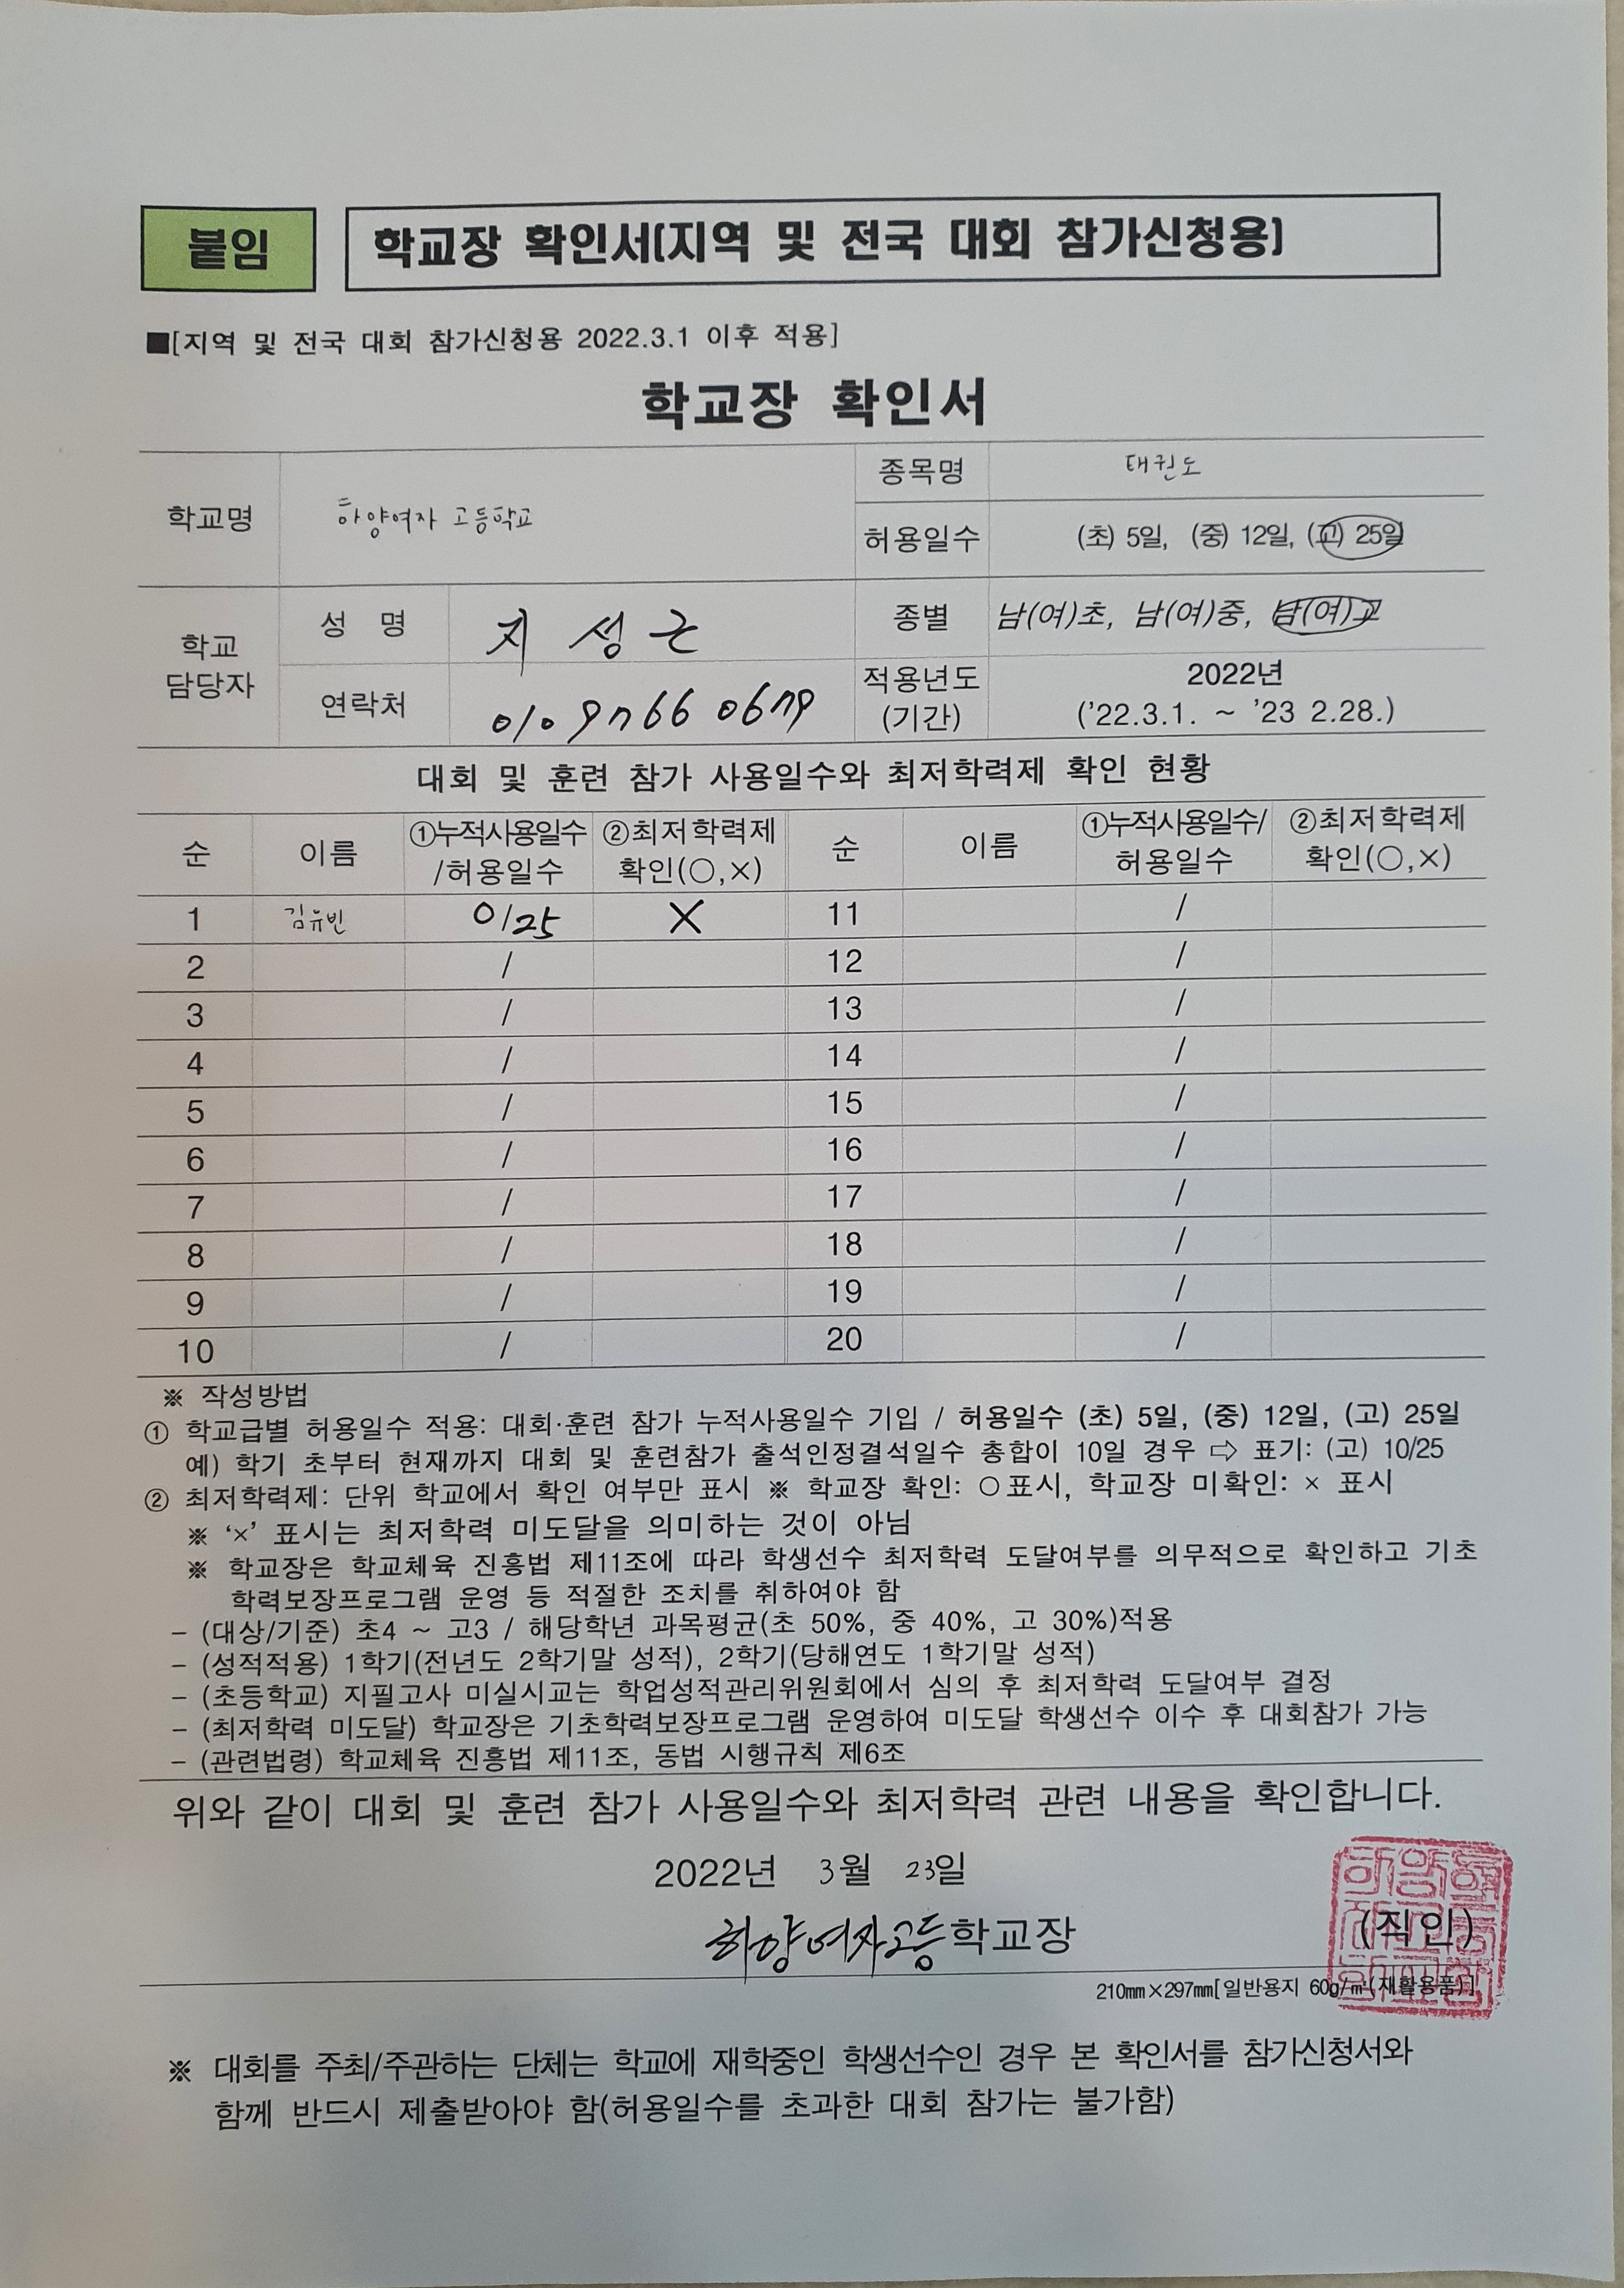 붙임
학교장 확인서(지역 및 전국 대회 참가신청용)
■[지역 및 전국 대회 참가신청용 2022.3.1 이후 적용]
학교장 확인서
학교명 하양여자 고등학교
종목명 태권도
허용일수 (초) 5일, (중) 12일, (고) 25일
학교 담당자
성 명 지성근
종별 남(여)초, 남(여)중, 남(여)고
연락처
적용년도 2022년
(기간) ('22.3.1. ~ '23 2.28.)
대회 및 훈련 참가 사용일수와 최저학력제 확인 현황
순 이름 ①누적사용일수 /허용일수 ②최저학력제 확인(○,×) 순 이름 ①누적사용일수/ 허용일수 ②최저학력제 확인(○,×)
1 김유빈 0/25 × 11 /
2 / 12 /
3 / 13 /
4 / 14 /
5 / 15 /
6 / 16 /
7 / 17 /
8 / 18 /
9 / 19 /
10 / 20 /
※ 작성방법
① 학교급별 허용일수 적용: 대회·훈련 참가 누적사용일수 기입 / 허용일수 (초) 5일, (중) 12일, (고) 25일
예) 학기 초부터 현재까지 대회 및 훈련참가 출석인정결석일수 총합이 10일 경우 ⇨ 표기: (고) 10/25
② 최저학력제: 단위 학교에서 확인 여부만 표시 ※ 학교장 확인: ○표시, 학교장 미확인: × 표시
※ '×' 표시는 최저학력 미도달을 의미하는 것이 아님
※ 학교장은 학교체육 진흥법 제11조에 따라 학생선수 최저학력 도달여부를 의무적으로 확인하고 기초
학력보장프로그램 운영 등 적절한 조치를 취하여야 함
- (대상/기준) 초4 ~ 고3 / 해당학년 과목평균(초 50%, 중 40%, 고 30%)적용
- (성적적용) 1학기(전년도 2학기말 성적), 2학기(당해연도 1학기말 성적)
- (초등학교) 지필고사 미실시교는 학업성적관리위원회에서 심의 후 최저학력 도달여부 결정
- (최저학력 미도달) 학교장은 기초학력보장프로그램 운영하여 미도달 학생선수 이수 후 대회참가 가능
- (관련법령) 학교체육 진흥법 제11조, 동법 시행규칙 제6조
위와 같이 대회 및 훈련 참가 사용일수와 최저학력 관련 내용을 확인합니다.
2022년 3월 23일
하양여자고등학교장 (직인)
210㎜×297㎜[일반용지 60g/㎡(재활용품)]
※ 대회를 주최/주관하는 단체는 학교에 재학중인 학생선수인 경우 본 확인서를 참가신청서와
함께 반드시 제출받아야 함(허용일수를 초과한 대회 참가는 불가함)